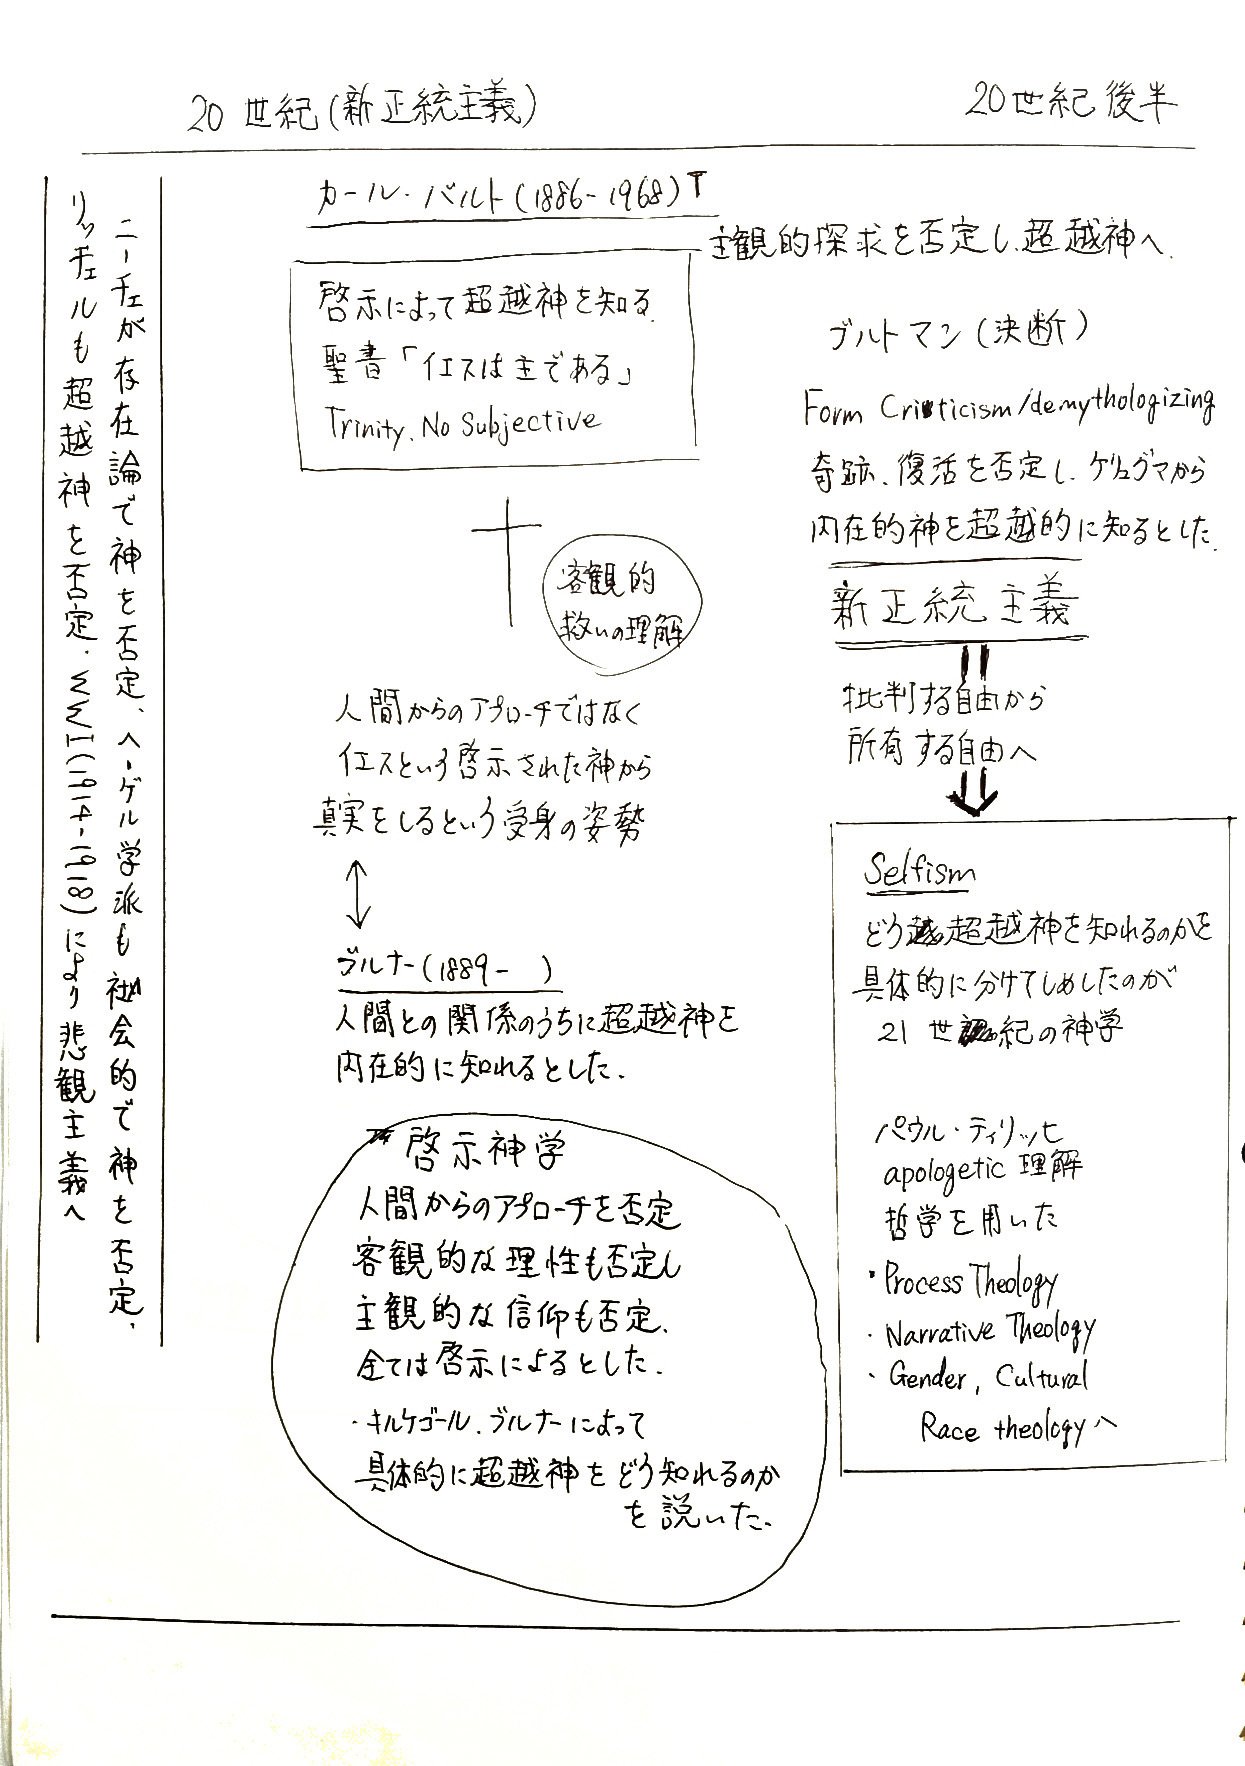 20世紀(新正統主義)
20世紀後半
ニーチェが存在論で神を否定、ヘーゲル学派も社会的で神を否定、
リッチェルも超越神を否定、WWI(1914-1918)により悲観主義へ
カール・バルト(1886-1968)
主観的探求を否定し、超越神へ
啓示によって超越神を知る
聖書「イエスは主である」
Trinity, No Subjective
客観的
救いの理解
人間からのアプローチではなく
イエスという啓示された神から
真実をしるという受身の姿勢
ブルナー(1889- )
人間との関係のうちに超越神を
内在的に知れるとした.
啓示神学
人間からのアプローチを否定
客観的な理性も否定し
主観的な信仰も否定、
全ては啓示によるとした.
・キルケゴール、ブルナーによって
具体的に超越神をどう知れるのか
を説いた.
ブルトマン(決断)
Form Criticism/demythologizing
奇跡、復活を否定し、ケリュグマから
内在的神を超越的に知るとした.
新正統主義
批判する自由から
所有する自由へ
Selfism
どう超越神を知れるのかを
具体的に分けてしめしたのが
21世紀の神学
パウル・ティリッヒ
apologetic 理解
哲学を用いた
・Process Theology
・Narrative Theology
・Gender, Cultural
Race theologyへ